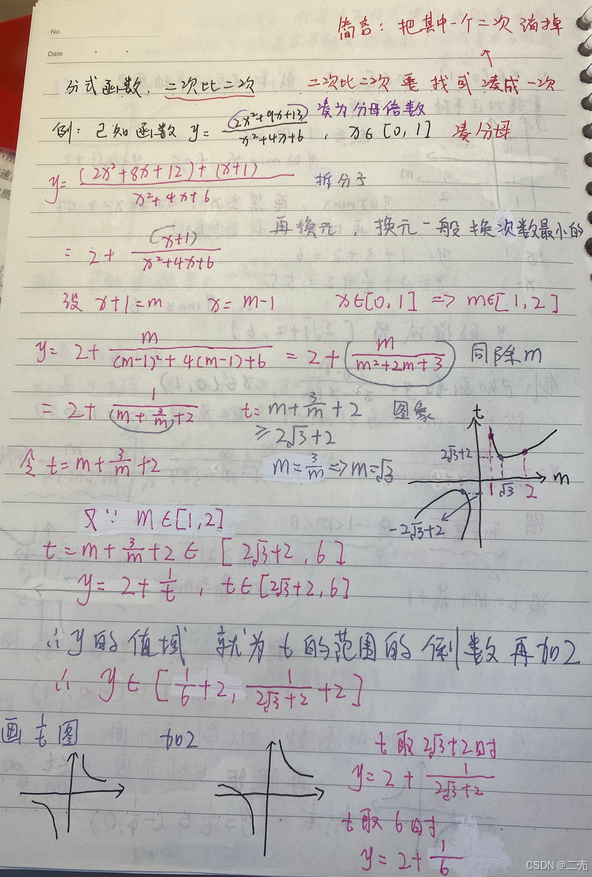 No.
Date
简言：把其中一个二次消掉
↑
分式函数，二次比二次　二次比二次要找或凑成一次
例：已知函数 y = (2x²+9x+13)/(x²+4x+6)，x∈[0,1]　凑为分母倍数　凑分母
y = ((2x²+8x+12)+(x+1))/(x²+4x+6)　拆分子
再换元　换元一般换次数最小的
= 2 + (x+1)/(x²+4x+6)
设 x+1=m　x=m-1　x∈[0,1] => m∈[1,2]
y = 2 + m/((m-1)²+4(m-1)+6) = 2 + (m/(m²+2m+3))　同除m
= 2 + 1/(m+3/m+2)　t=m+3/m+2　图象
≥2√3+2
令 t=m+3/m+2　m=3/m => m=√3
t
2√3+2
1 √3 2 m
-2√3+2
又∵ m∈[1,2]
t=m+3/m+2 ∈ [2√3+2, 6]
y = 2+1/t , t∈[2√3+2, 6]
∴ y的值域 就为 t的范围的倒数再加2
∴ y∈[1/6+2, 1/(2√3+2)+2]
画1/t图　加2
t取2√3+2时
y = 2+1/(2√3+2)
t取6时
y = 2+1/6
CSDN @二壳